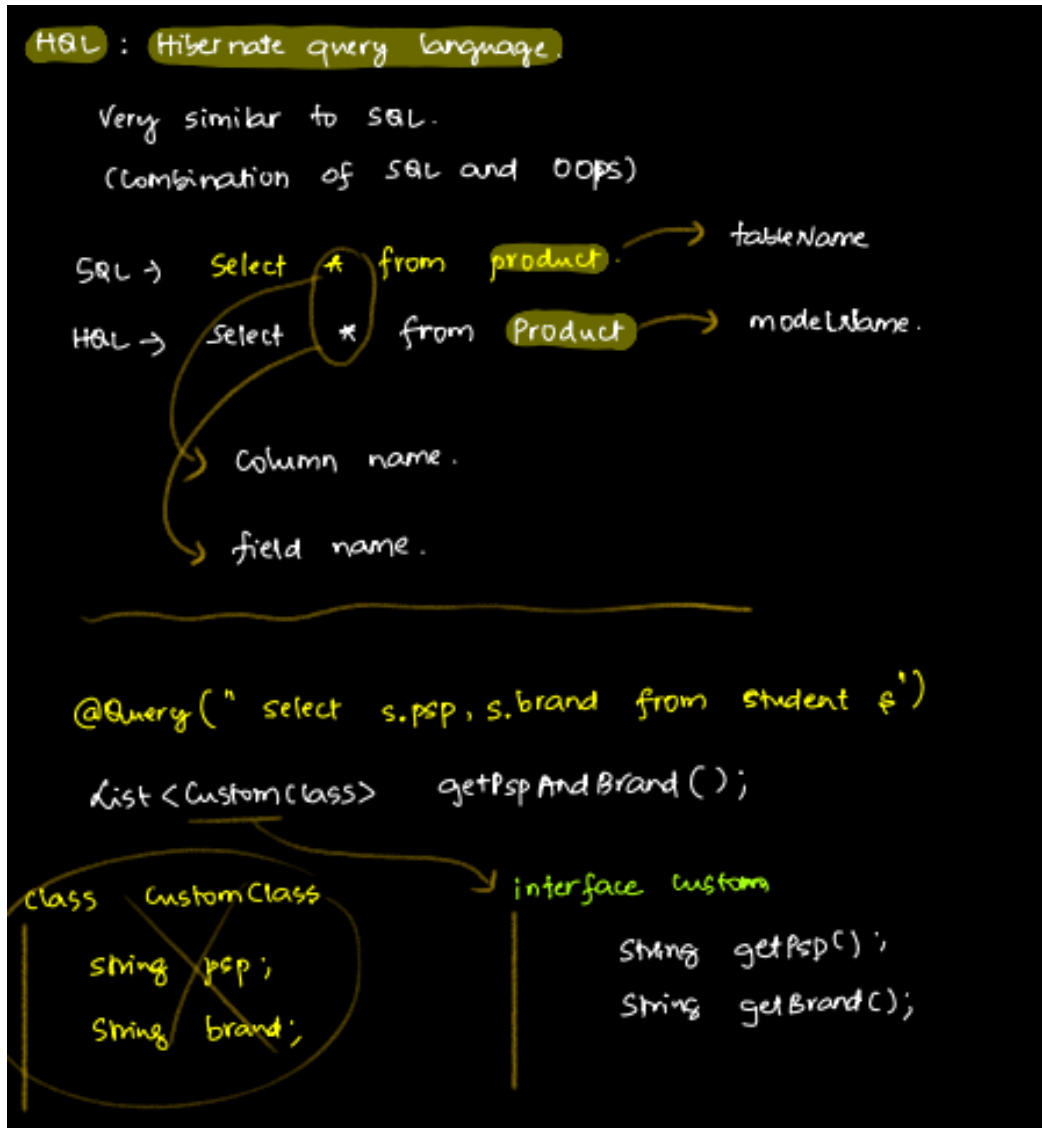 HQL : Hibernate query language.
Very similar to SQL.
(Combination of SQL and OOPs)
SQL → Select * from product. → tableName
HQL → Select * from Product → modelName.
Column name.
field name.
@Query(" select s.psp, s.brand from student s")
List <CustomClass> getPspAndBrand();
class CustomClass
String psp;
String brand;
interface Custom
String getPsp();
String getBrand();